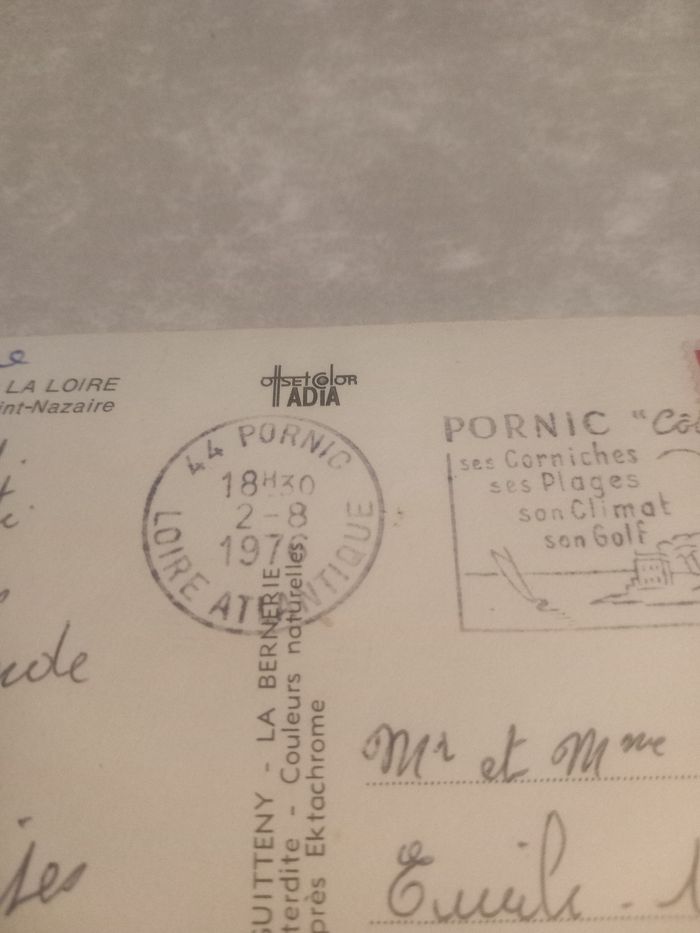 LA LOIRE
int-Nazaire
offset color
ADIA
44 PORNIC
18H30
2-8
LOIRE ATLANTIQUE
PORNIC "Cô
ses Corniches
ses Plages
son Climat
son Golf
GUITTENY - LA BERNERIE
terdite - Couleurs naturelles
près Ektachrome
Mr et Mme
Emile